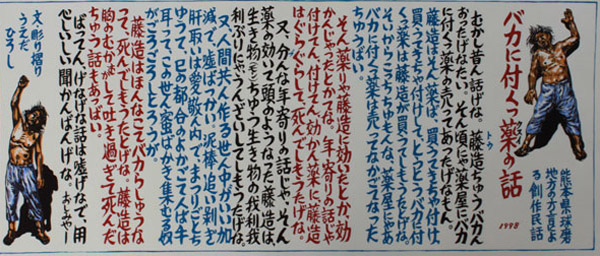 バカに付くっ薬の話
クス
熊本県球磨
地方の方言によ
る創作民話
1998
むかし昔ん話げな。藤造ちゅうバカん
トウ
おったげなたい。そん頃にゃ薬屋にバカ
に付くっ薬の売ってあったげなもん。
藤造はそん薬ば、買うてきちゃ付け
買うてきちゃ付けして、とうとうバカに付
くっ薬は藤造が買うてしもたげな。
薬屋にゃあ
バカに付くっ薬は売ってなかごつなった
ちゅうばい。
そん薬りゃ藤造に効いたとか、効
かんじゃったとかてな。年寄りの話じゃ
付けてん、付けてん、効かん薬に、藤造
はぐらぐらして、死んでしもうたげな。
又、分んな年寄りの話じゃ、そん
薬の効いて頭のようなった藤造は、
生き物ちゅう生き物の我利我
利ぶりにゃうんざいしてしもうたげな。
又、人間共ん作る世ん中が、不加
減、嘘、泥棒、追い剥ぎ
肝取いは愛や敬や内で、まつりごとち
ゆうて、民の都合のよかごてんばし
耳っ、この世ん蜜ばかき集むる奴
がごろごろしとろうが。
藤造はほんなこてバカらしゅうな
って、死んでしもうたげな。藤造は
胸のむかむかして吐き過ぎて死んだ
ちゅう話もあっばい。
ばってん、げなげな話は嘘げなで、用
心しいしい聞かんばんげな。おしみゃー
文・彫り摺り
うえだ
ひろし